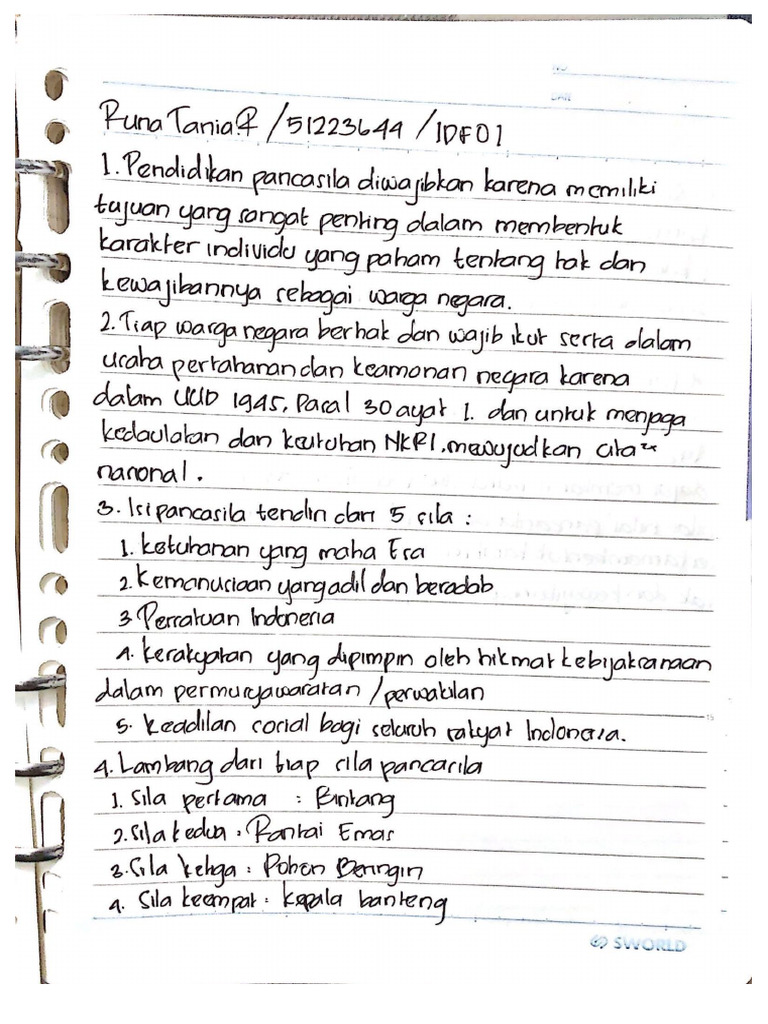 Runa Tania.R /51223644 /1DF01
1. Pendidikan pancasila diwajibkan karena memiliki
tujuan yang sangat penting dalam membentuk
karakter individu yang paham tentang hak dan
kewajibannya sebagai warga negara.
2. Tiap warga negara berhak dan wajib ikut serta dalam
usaha pertahanan dan keamanan negara karena
dalam UUD 1945, Pasal 30 ayat 1. dan untuk menjaga
kedaulatan dan keutuhan NKRI, mewujudkan cita²
nasional.
3. Isi pancasila terdiri dari 5 sila :
1. ketuhanan yang maha Esa
2. Kemanusiaan yang adil dan beradab
3 Persatuan Indonesia
4. kerakyatan yang dipimpin oleh hikmat kebijaksanaan
dalam permusyawaratan /perwakilan
5. keadilan sosial bagi seluruh rakyat Indonesia.
4. Lambang dari tiap sila pancasila
1. Sila pertama : Bintang
2. Sila kedua : Rantai Emas
3. Sila ketiga : Pohon Beringin
4. Sila keempat : kepala banteng
SWORLD